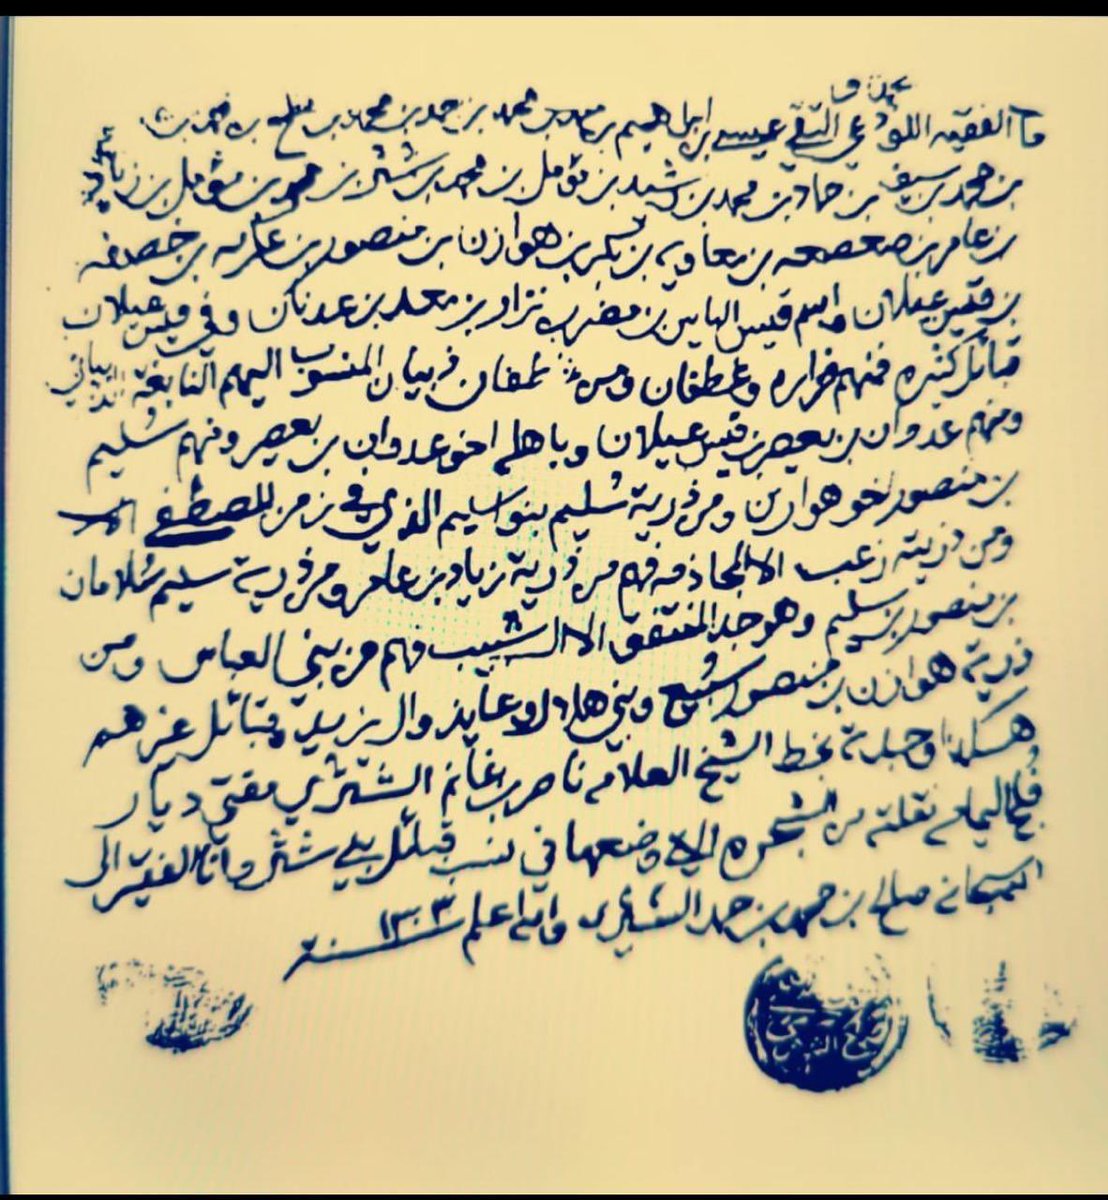 الفقيه اللوذعي التقي عيسى بن ابراهيم بن محمد بن حمد بن محمد بن
بن محمد بن سيف بن حماد بن محمد بن رشيد بن مؤمل بن محمد بن شثر بن بن مؤمل بن زياد
بن عامر بن صعصعه بن معاويه بن بكر بن هوازن بن منصور بن عكرمه بن خصفه
بن قيس عيلان واسم قيس الياس بن مضر بن نزار بن معد بن عدنان وفي قيس عيلان
قبائل كثيره فمنهم فزاره وغطفان ومن غطفان ذبيان المنسوب اليهم النابغة الذبياني
ومنهم عدوان بن يعصر بن قيس عيلان وباهله اخو عدوان بن يعصر ومنهم سُليم
بن منصور اخو هوازن ومن ذرية سُليم بنو سليم الذي في زمن المصطفى
ومن ذريته زعب الا المجاذمه فهم من ذرية زياد بن عامر ومن ذرية سليم سُلامان
بن منصور بن سليم وهو جد المنتفق الا ال شبيب فهم من بني العباس ومن
ذرية هوازن بن منصور سُبيع وبني هلال و عايذ وال يزيد وقبائل غيرهم
هكذا وجدته بخط الشيخ العلامه ناصر بن غانم الشثري مفتي ديار
اليمامه نقلته من الشجره التي وضعها في نسب قبائل بني شثر وانا الفقير الى
الله سبحانه صالح بن محمد بن حمد الشثري والله اعلم سنة ١٣٠٣